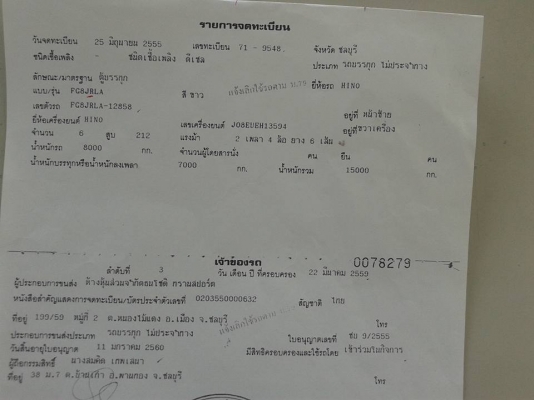 รายการจดทะเบียน
วันจดทะเบียน 25 มิถุนายน 2555 เลขทะเบียน 71 - 9548 จังหวัด ชลบุรี
ชนิดเชื้อเพลิง ชนิดเชื้อเพลิง ดีเซล ประเภท รถบรรทุก ไม่ประจำทาง
ลักษณะ/มาตรฐาน ตู้บรรทุก
แบบ/รุ่น FG8JRLA สี ขาว ยี่ห้อรถ HINO
เลขตัวรถ FG8JRLA-12858 อยู่ที่ หน้าซ้าย
ยี่ห้อเครื่องยนต์ HINO เลขเครื่องยนต์ J08EUEH13594 อยู่ที่ ขวาเครื่อง
จำนวน 6 สูบ 212 แรงม้า 2 เพลา 4 ล้อ ยาง 6 เส้น
น้ำหนักรถ 8000 กก. จำนวนผู้โดยสารนั่ง คน ยืน คน
น้ำหนักบรรทุกหรือน้ำหนักลงเพลา 7000 กก. น้ำหนักรวม 15000 กก.
เจ้าของรถ 0078279
ลำดับที่ 3 วัน เดือน ปี ที่ครอบครอง 22 มีนาคม 2559
ผู้ประกอบการขนส่ง
หนังสือสำคัญแสดงการจดทะเบียน/บัตรประจำตัวเลขที่ 0203550000632 สัญชาติ ไทย
ที่อยู่ 199/59 หมู่ที่ 2 ต.หนองไม้แดง อ.เมือง จ.ชลบุรี โทร
ประกอบการขนส่งประเภท รถบรรทุก ไม่ประจำทาง ใบอนุญาตเลขที่ ชบ 9/2555
วันสิ้นอายุใบอนุญาต 11 มกราคม 2560 มีสิทธิครอบครองและใช้รถโดย เช้าร่วมกิจการ
ผู้ถือกรรมสิทธิ์ นางสมคิด
ที่อยู่ 38 ม.7 อ.พานทอง จ.ชลบุรี โทร